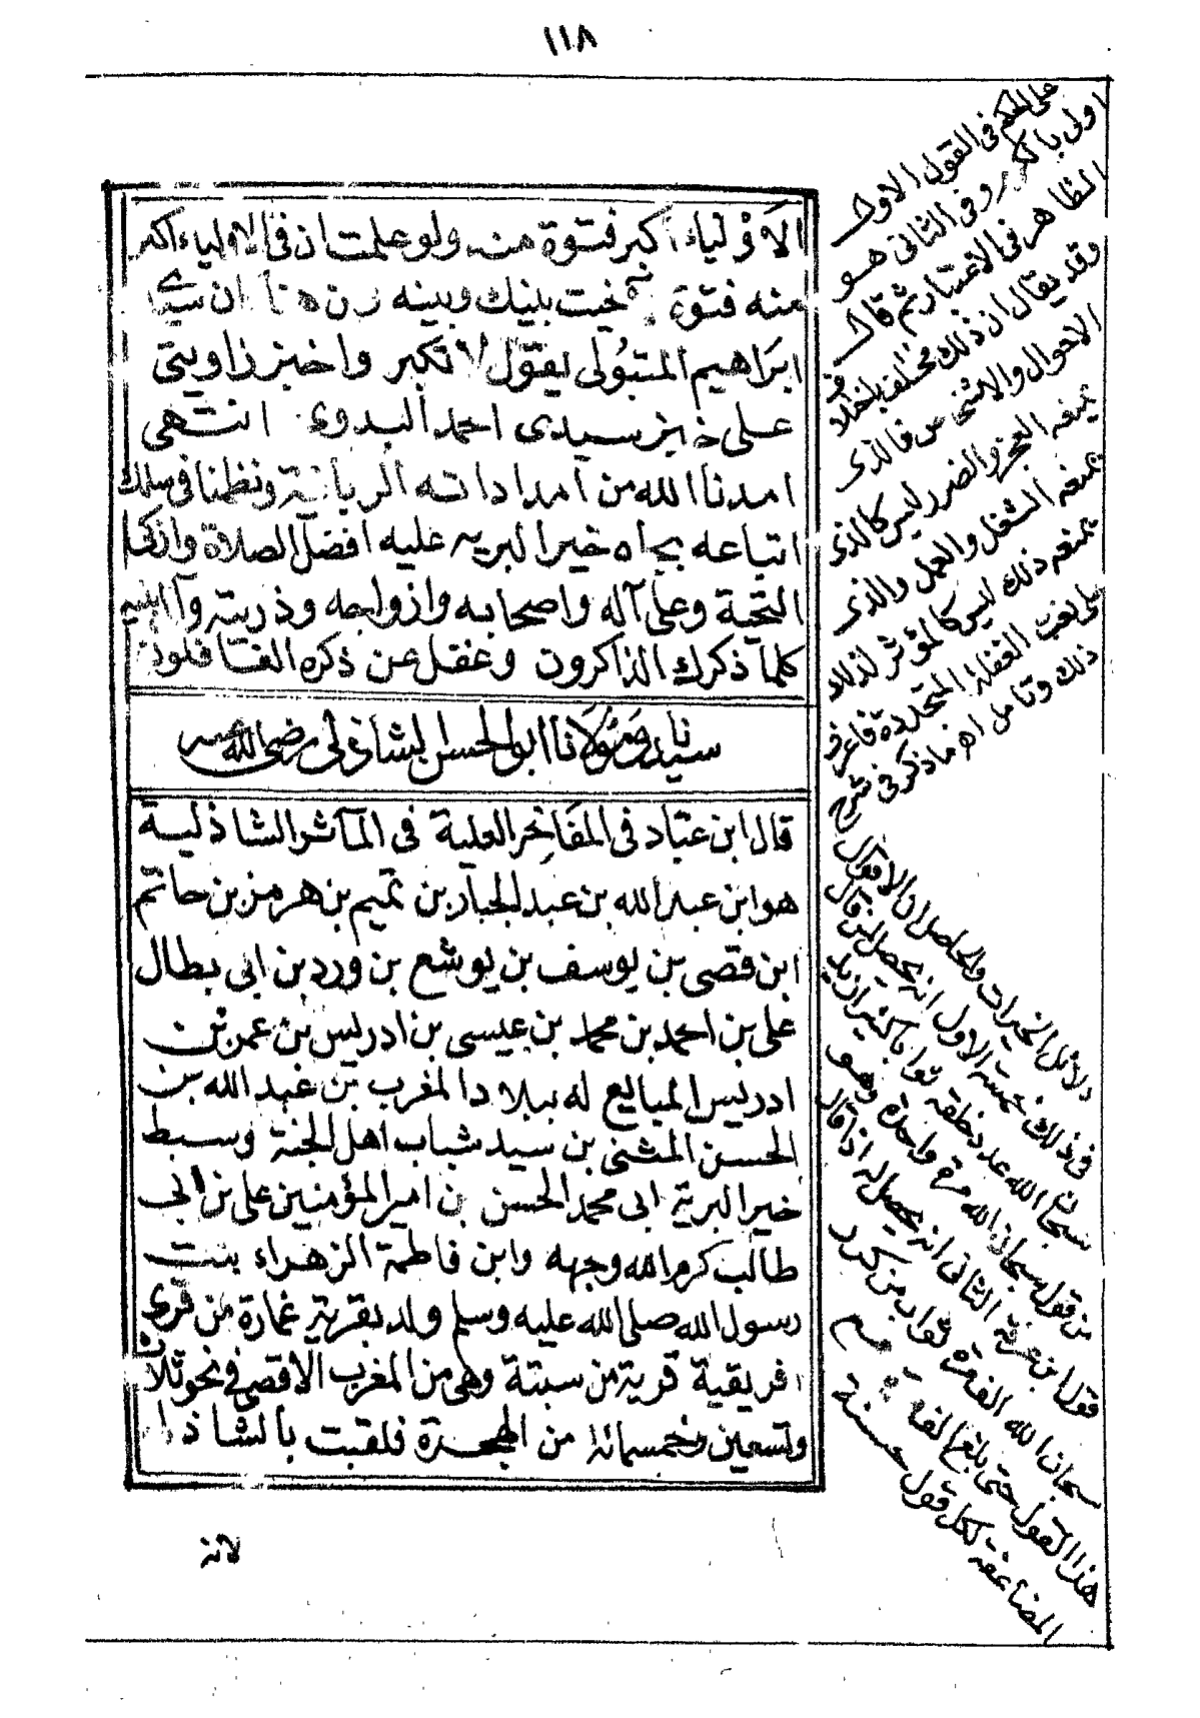 ١١٨
الاولياء اكبر فتوة منه ولو علمت ان فى الاولياء اكبر
منه فتوة خيت بينك وبينه ان
ابراهيم المتبولى يقول لا تكبر واخبز زاويتى
على خبز سيدى احمد البدوى انتهى
امدنا الله من امداداته الربانية ونظمنا فى سلك
اتباعه بجاه خير البريه عليه افضل الصلاة وازكى
التحية وعلى آله واصحابه وازواجه وذريته وآل بيته
كلما ذكرك الذاكرون وغفل عن ذكره الغافلون
سيدنا ومولانا ابو الحسن الشاذلى رضى الله عنه
قال ابن عباد فى المفاخر العلية فى المآثر الشاذلية
هو ابن عبد الله بن عبد الجبار بن تميم بن هرمز بن حاتم
ابن قصى بن يوسف بن يوشع بن ورد بن ابى بطال
على بن احمد بن محمد بن عيسى بن ادريس بن عمر بن
ادريس المبايع له ببلاد المغرب بن عبد الله بن
الحسن المثنى بن سيد شباب اهل الجنة وسبط
خير البرية ابى محمد الحسن بن امير المؤمنين على بن ابى
طالب كرم الله وجهه وابن فاطمة الزهراء بنت
رسول الله صلى الله عليه وسلم ولد بقرية غمارة من قرى
افريقية قرية من سبتة وهى من المغرب الاقصى فى نحو ثلاث
وتسعين وخمسمائة من الهجرة فلقبت بالشاذ
لانه
على الحكم فى القول الاول
اولى بالكر وفى الثانى هو
الظاهر فى الاعتبار ثم قال
وقد يقال ان ذلك مختلف باختلاف
الاحوال والاشخاص فالذى
يمنعه العجز والضرر ليس كالذى
يمنعه الشغل والعمل والذى
يمنعه ذلك ليس كالمؤثر لذلك
الغفلة المتجددة فاعرف
ذلك وتامل اهـ ما ذكر فى شرح
دلائل الخيرات والحاصل ان الاقوال
فى ذلك خمسة الاول انه يحصل لمن قال
سبحان الله عدد خلقه ثوابا كثيرا زيد
من قول سبحان الله مرة واحدة وهو
قول ابن عرفة الثانى انه يحصل له اذا قال
سبحان الله الف مرة ثواب من كرر
هذا القول حتى بلغ الف
المضاعفة لكل قول حسنة